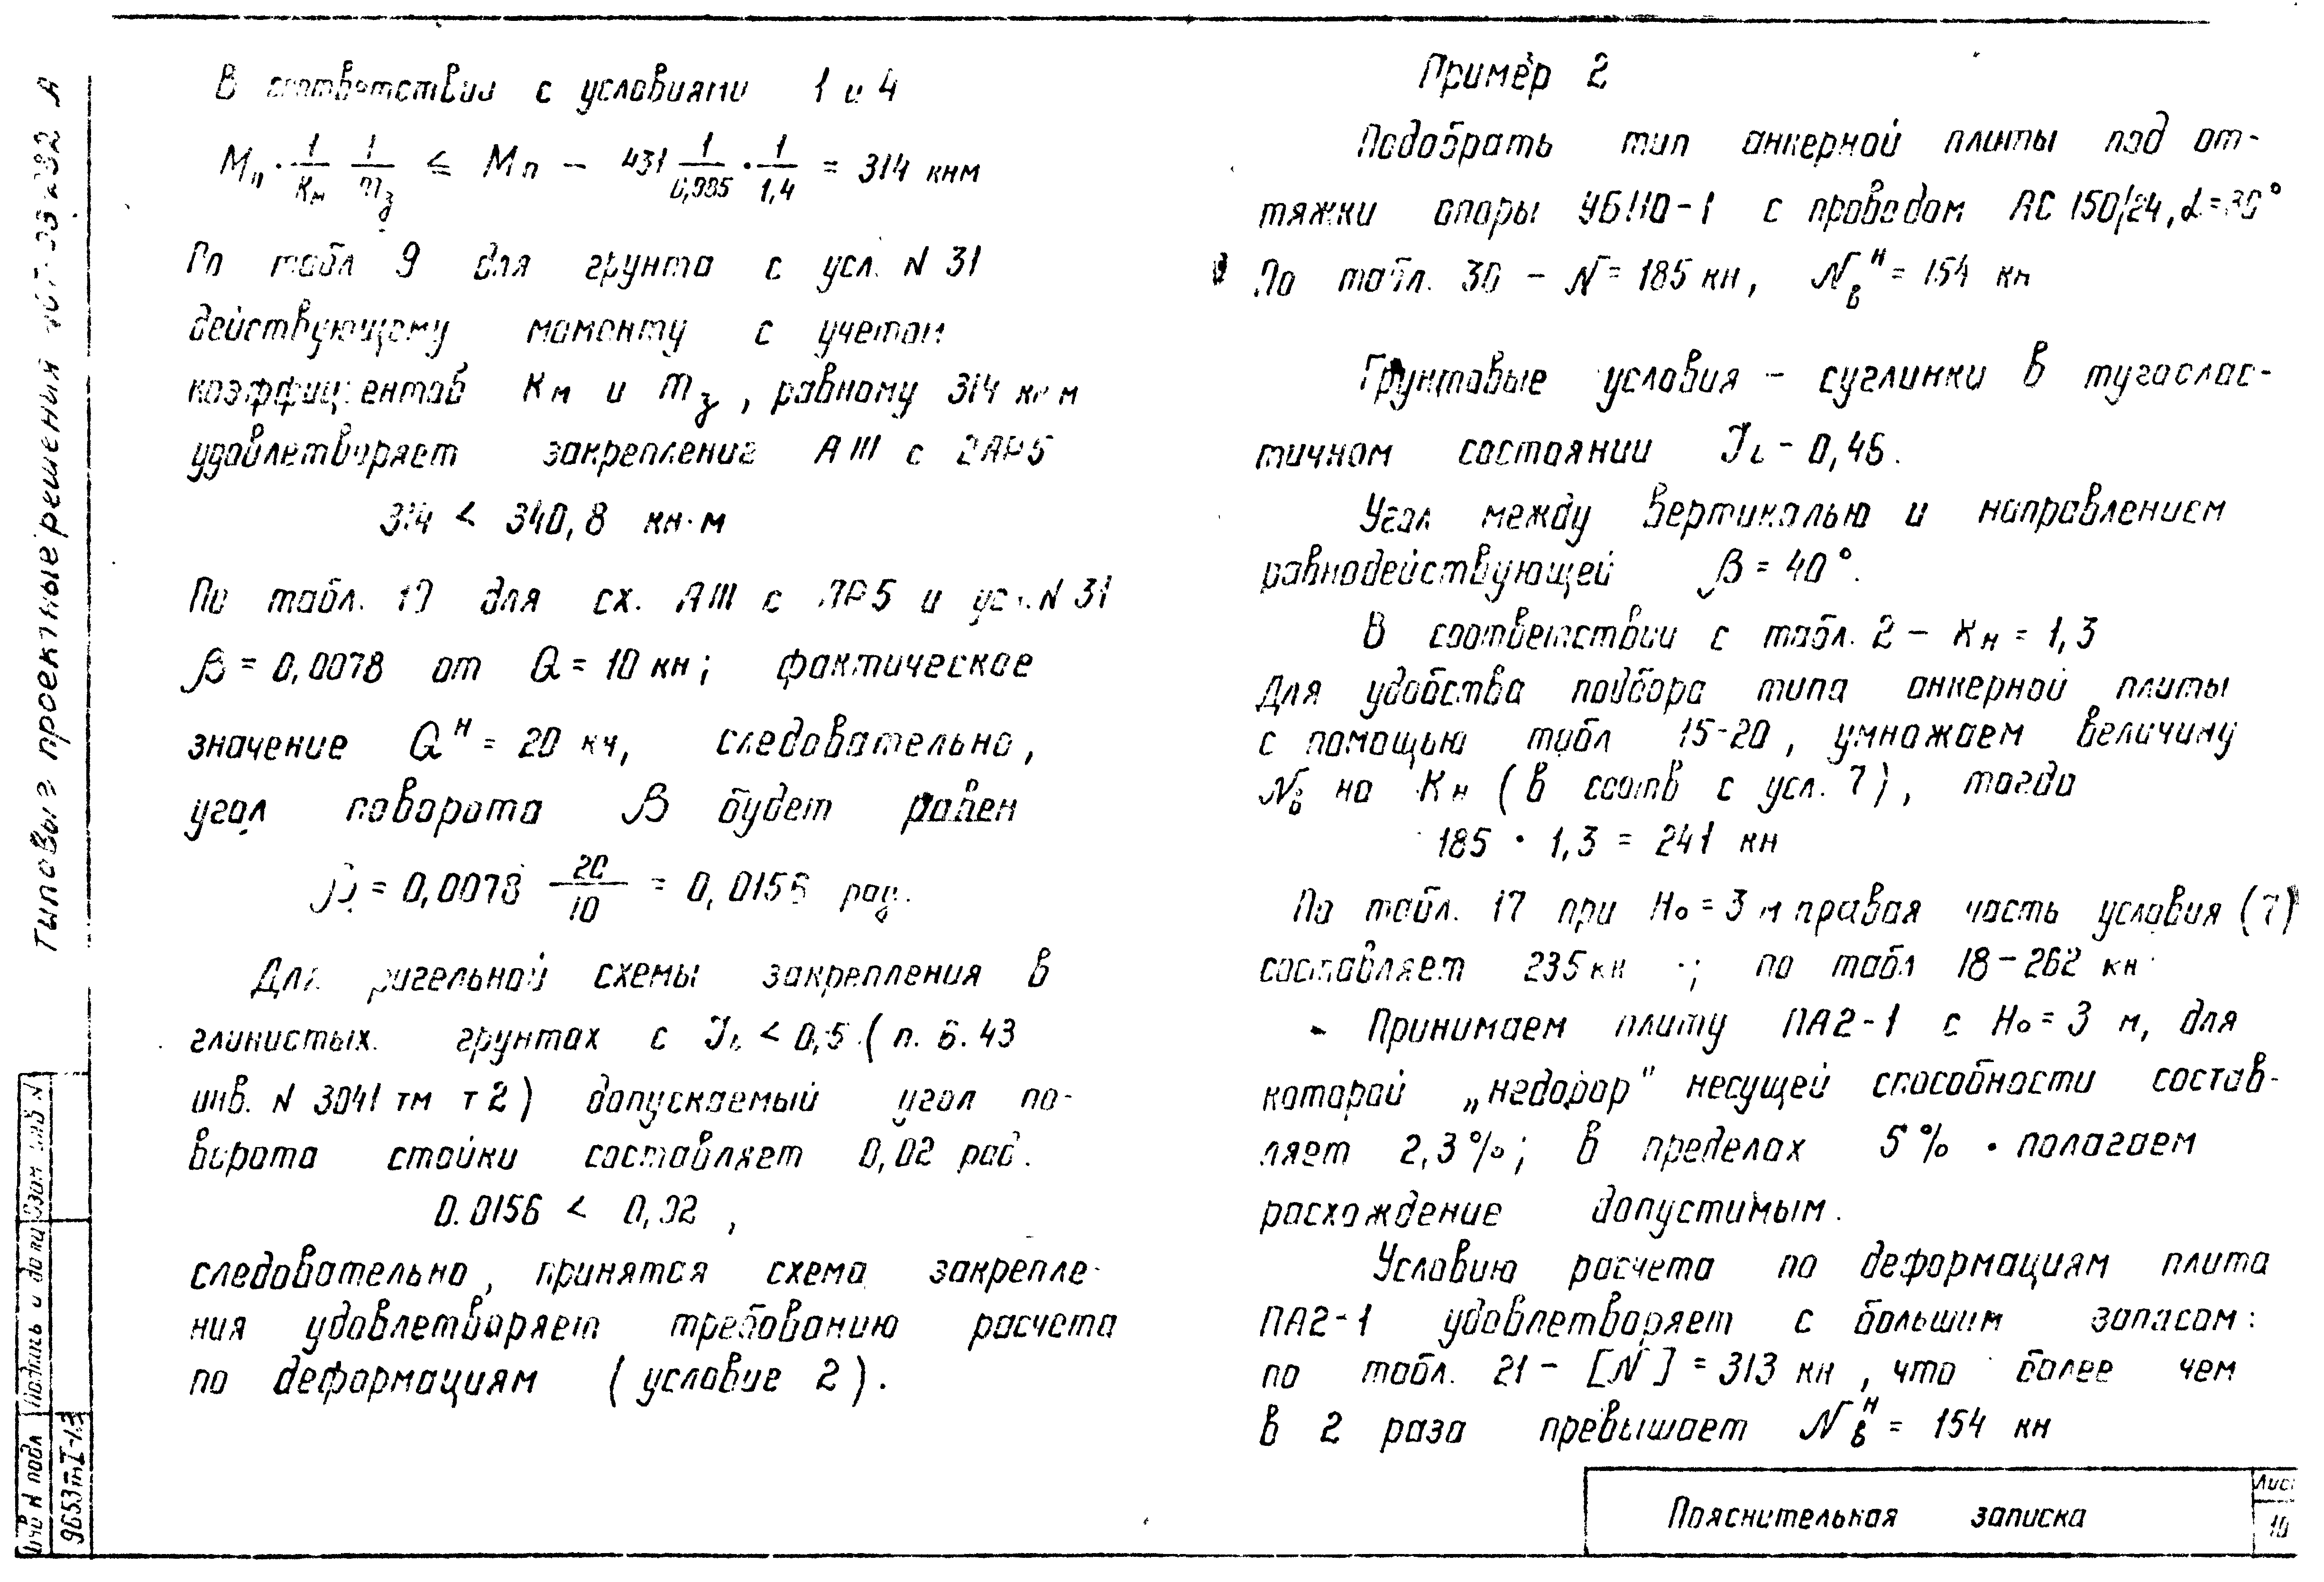 В соответствии с условиями 1 и 4
Мп · 1/Км 1/mз ≤ Мп – 431 1/0,985 · 1/1,4 = 314 кнм
По табл 9 для грунта с усл. N 31
действующему моменту с учетом
коэффициентов Км и mз, равному 314 кн м
удовлетворяет закрепление АIII с 2АР5
314 < 340,8 кн·м
По табл. 19 для сх. АIII с АР5 и усл. N 31
β = 0,0078 от Q = 10 кн; фактическое
значение Qᴴ = 20 кн, следовательно,
угол поворота β будет равен
β = 0,0078 20/10 = 0,0156 рад.
Для ригельной схемы закрепления в
глинистых грунтах с JL < 0,5 (п. 6.43
инв. N 3041 тм т 2) допускаемый угол по-
ворота стойки составляет 0,02 рад.
0.0156 < 0,02 ,
следовательно, принятая схема закрепле-
ния удовлетворяет требованию расчета
по деформациям (условие 2).
Пример 2
Подобрать тип анкерной плиты под от-
тяжки опоры УБ110-1 с проводом АС 150/24, α=30°
По табл. 30 – N = 185 кн, Nвᴴ = 154 кн
Грунтовые условия – суглинки в тугоплас-
тичном состоянии JL – 0,45.
Угол между вертикалью и направлением
равнодействующей β = 40°.
В соответствии с табл. 2 – Кн = 1,3
Для удобства подбора типа анкерной плиты
с помощью табл 15-20, умножаем величину
Nв на Кн (в соотв с усл. 7), тогда
185 · 1,3 = 241 кн
По табл. 17 при Но = 3 м правая часть условия (7)
составляет 235 кн ; по табл 18 – 262 кн
Принимаем плиту ПА2-1 с Но = 3 м, для
которой „недобор" несущей способности состав-
ляет 2,3%; в пределах 5% полагаем
расхождение допустимым.
Условию расчета по деформациям плита
ПА2-1 удовлетворяет с большим запасом:
по табл. 21 – [N] = 313 кн, что более чем
в 2 раза превышает Nвᴴ = 154 кн
Типовые проектные решения
Взам инв N
Подпись и дата
Инв N подл
9653тмI-13
Пояснительная записка
Лист
10